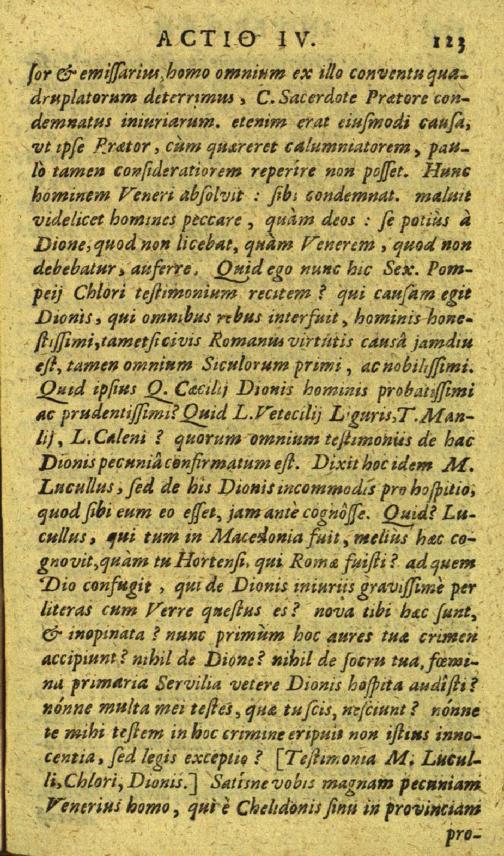 ACTIO IV. 123
ſor & emiſſarius, homo omnium ex illo conventu qua-
druplatorum deterrimus, C. Sacerdote Prætore con-
demnatus iniuriarum. etenim erat eiuſmodi cauſa,
vt ipſe Prætor, cùm quæreret calumniatorem, pau-
lò tamen conſideratiorem reperire non poſſet. Hunc
hominem Veneri abſolvit : ſibi condemnat. maluit
videlicet homines peccare, quàm deos : ſe potiùs à
Dione, quod non licebat, quàm Venerem, quod non
debebatur, auferre. Quid ego nunc hic Sex. Pom-
peij Chlori teſtimonium recitem ? qui cauſam egit
Dionis, qui omnibus rebus interfuit, hominis hone-
ſtiſſimi, tametſi civis Romanus virtutis cauſâ jamdiu
eſt, tamen omnium Siculorum primi, ac nobiliſſimi.
Quid ipſius Q. Cæcilij Dionis hominis probatiſſimi
ac prudentiſſimi? Quid L. Vetecilij Liguris, T. Man-
lij, L. Caleni ? quorum omnium teſtimoniis de hac
Dionis pecuniâ confirmatum eſt. Dixit hoc idem M.
Lucullus, ſed de his Dionis incommodis pro hoſpitio,
quod ſibi eum eo eſſet, jam ante cognôſſe. Quid? Lu-
cullus, qui tum in Macedonia fuit, melius hæc co-
gnovit, quàm tu Hortenſi, qui Romæ fuiſti ? ad quem
Dio confugit, qui de Dionis iniuriis graviſſimè per
literas cum Verre queſtus es? nova tibi hæc ſunt,
& inopinata ? nunc primùm hoc aures tuæ crimen
accipiunt? nihil de Dione? nihil de ſocru tua, fœmi-
na primaria Servilia vetere Dionis hoſpita audîſti?
nónne multa mei teſtes, quæ tu ſcis, neſciunt? nónne
te mihi teſtem in hoc crimine eripuit non iſtius inno-
centia, ſed legis exceptio ? [Teſtimonia M. Lucul-
li, Chlori, Dionis.] Satiſne vobis magnam pecuniam
Venerius homo, qui è Chelidonis ſinu in provinciam
pro-